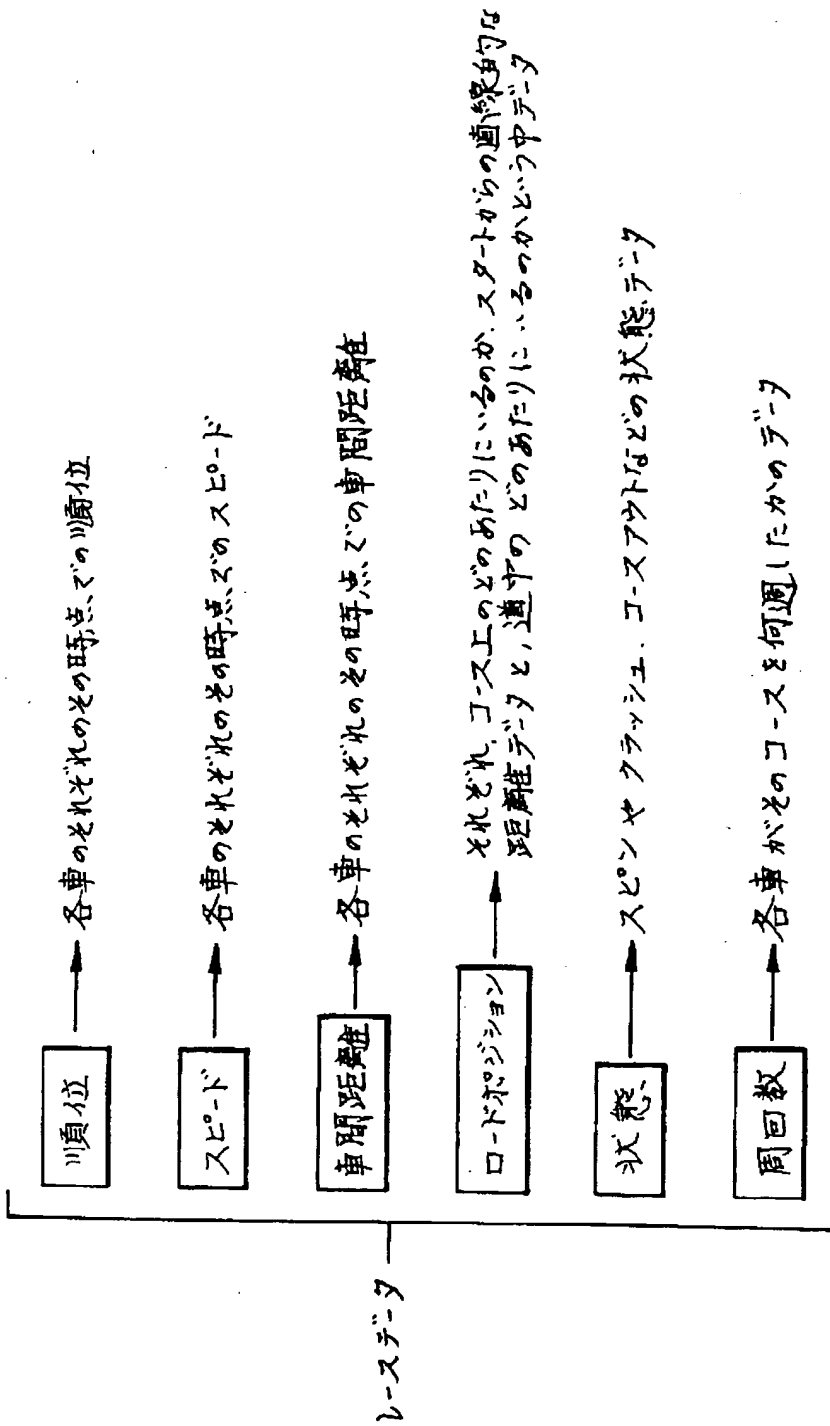 レースデータ
順位
各車のそれぞれのその時点での順位
スピード
各車のそれぞれのその時点でのスピード
車間距離
各車のそれぞれのその時点での車間距離
ロードポジション
それぞれ、コース上のどのあたりにいるのか、スタートからの直線的な
距離データと,道中のどのあたりにいるのかという中データ
状態
スピンやクラッシュ、コースアウトなどの状態データ
周回数
各車がそのコースを何週したかのデータ